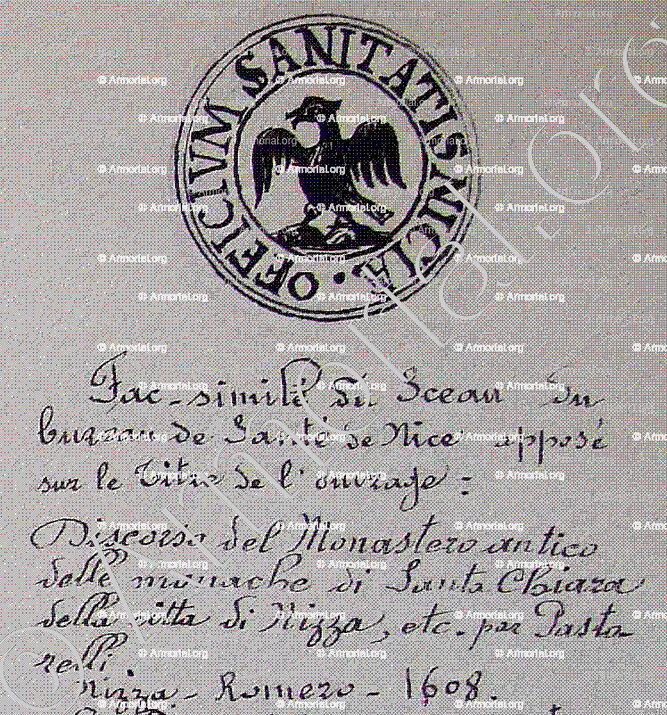 OFFICIVM SANITATIS NICIÆ.
Fac-simile du Sceau du
bureau de Santé de Nice apposé
sur le Titre de l'ouvrage :
Discorso del Monastero antico
delle monache di Santa Chiara
della citta di Nizza, etc. par Pasto
relli.
Nizza - Romero - 1608.
© Armorial.org